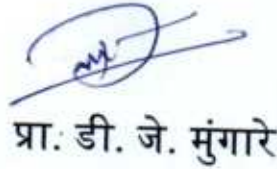 प्रा. डी. जे. मुंगारे